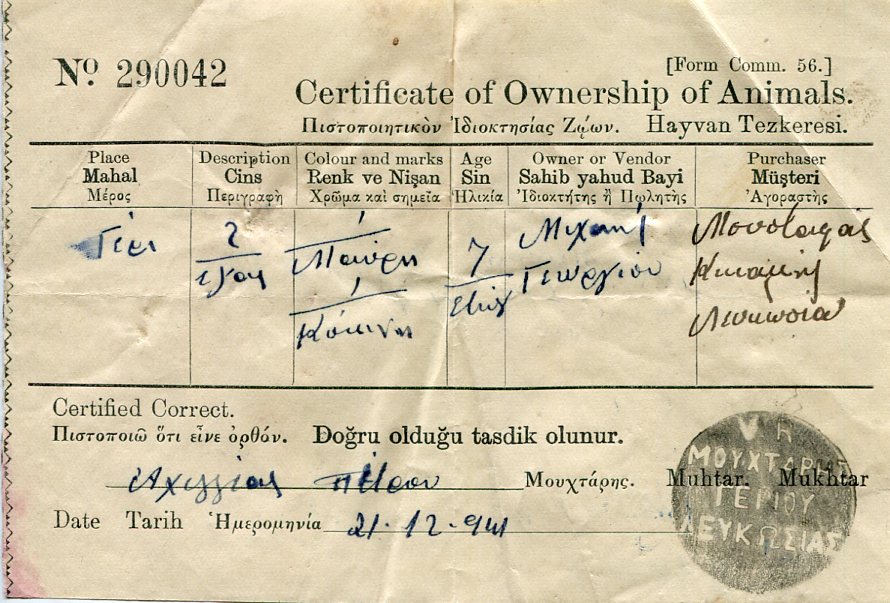 Nº 290042
[Form Comm. 56.]
Certificate of Ownership of Animals.
Πιστοποιητικὸν Ἰδιοκτησίας Ζῴων. Hayvan Tezkeresi.
Place Description Colour and marks Age Owner or Vendor Purchaser
Mahal Cins Renk ve Nişan Sin Sahib yahud Bayi Müşteri
Μέρος Περιγραφὴ Χρῶμα καὶ σημεῖα Ἡλικία Ἰδιοκτήτης ἢ Πωλητὴς Ἀγοραστής
Γέρι 2 1 7 Μιχαήλ Μουσταφάς
Μαύρη Γεωργίου
1
Κόκινη Λευκωσία
Certified Correct.
Πιστοποιῶ ὅτι εἶνε ὀρθόν. Doğru olduğu tasdik olunur.
Αχιλλέας Πέτρου Μουχτάρης. Muhtar. Mukhtar
Date Tarih Ἡμερομηνία 21.12.941
V R
ΜΟΥΧΤΑΡΗΣ
ΓΕΡΙΟΥ
ΛΕΥΚΩΣΙΑΣ